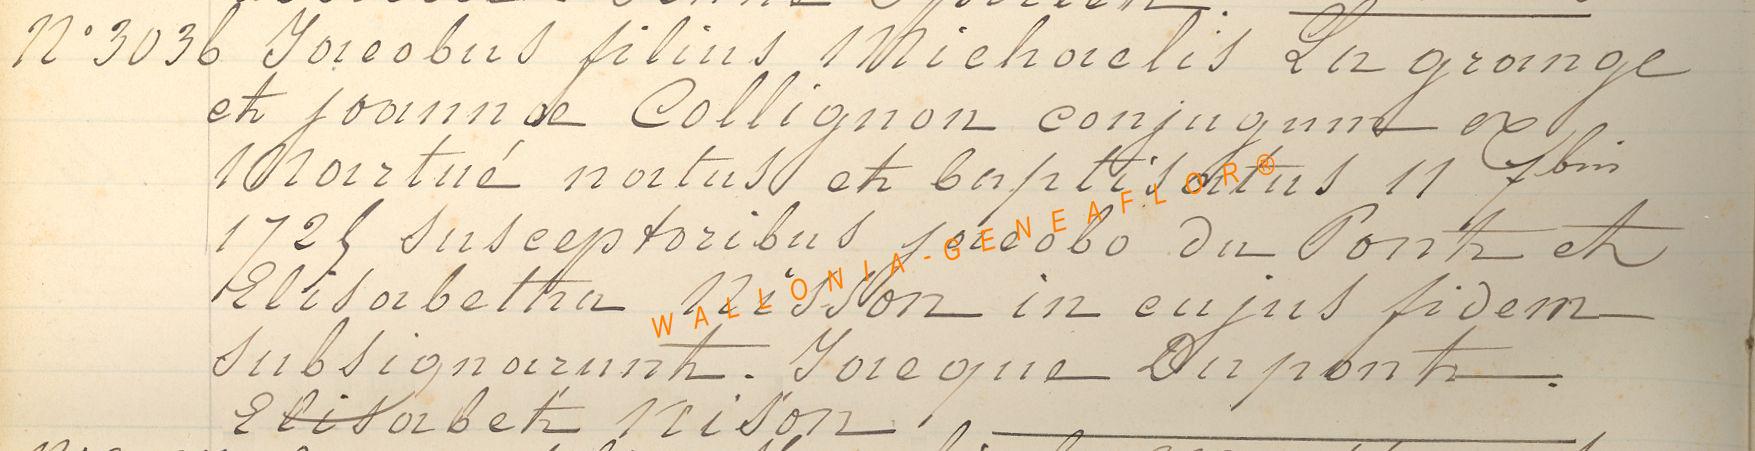 N° 3036 Jacobus filius Michaelis La grange
et joannae Collignon conjugum ex
Martué natus et baptisatus 11 7bris
susceptoribus jacobo du Pont et
Elisabetha Nisson in cujus fidem
subsignarunt. Jacque Dupont.
Elisabet Nison
WALLONIA-GENEAFLOR®